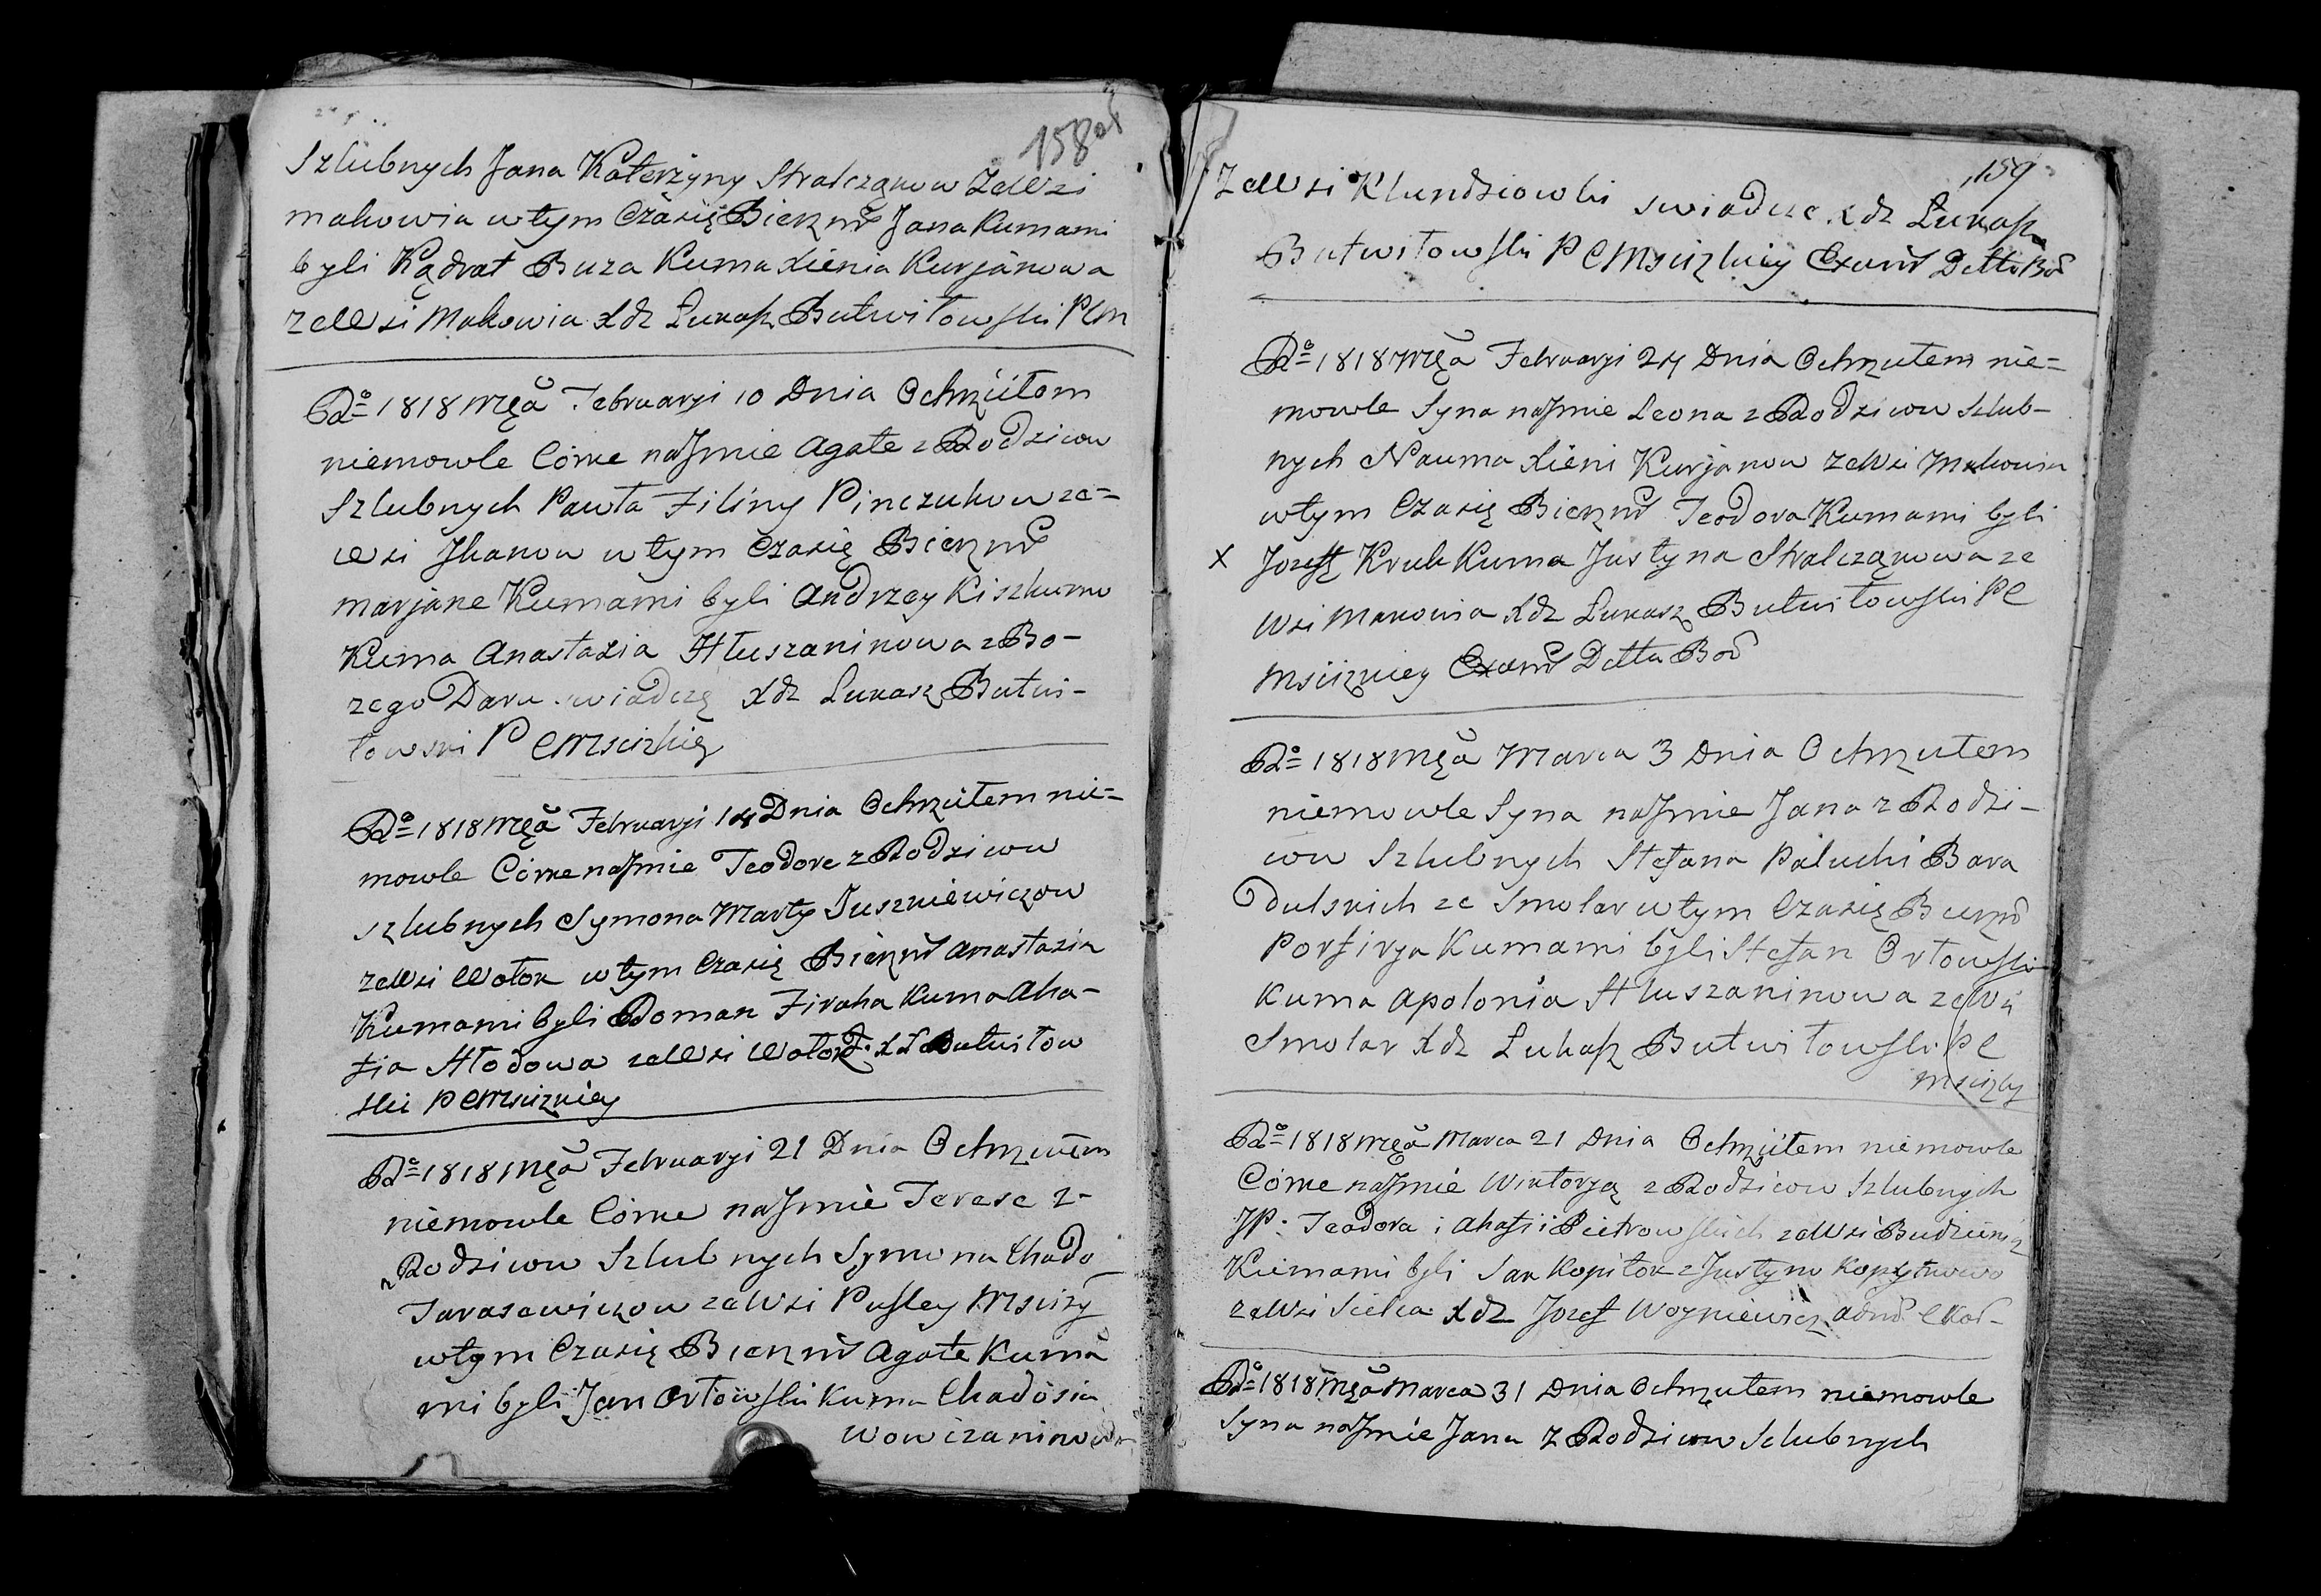 158 об
Szlubnych Jana Katerżyny Stralcząkow ze Wsi
makowia w tym Czasię Bierzm Jana Kumami
byli Kądrat Buza Kuma Xienia Kurjanowa
ze Wsi Makowia Xdz Łukasz Butwiłowski PCM
Ro= 1818 Mca Februaryi 10 Dnia Ochrzciłem
niemowle Córke na Jmie Agate z Rodzicow
Szlubnych Pawła Filiny Pinczukow ze=
Wsi Jkanow w tym Czasię Bierzm
marjane Kumami byli Andrzey Kiszkurno
Kuma Anastazia Hłuszaninowa z Bo-
zego Daru swiadczę Xdz Łukasz Butwi-
łowski P C Msciskię
Ro= 1818 Mca Februaryi 14 Dnia Ochrzciłem nie=
mowle Córke na Jmie Teodore z Rodzicow
szlubnych Symona Marty Juszkiewiczow
ze Wsi Wołok w tym Czasię Bierzm Anastazia
Kumami byli Roman Firaha Kuma Aha-
fia Hłodowa ze Wsi Wołok Xdz Butwiłow
ski P C Mscizkiey
Ro= 1818 Mca Februaryi 21 Dnia Ochrzciłem
niemowle Córke na Jmie Terese z-
Rodzicow Szlubnych Symona Chado
Tarasewiczow ze Wsi Pusley Mscizy
w tym Czasię Bierzm Agate Kuma
mi byli Jan Orłowski Kuma Chadosia
Wowczaninowa
159
ze Wsi Klundziowki swiadcze Xdz Łukasz
Butwiłowski P C Mscizkiey Exam Detta Bod
Ro= 1818 Mca Februaryi 24 Dnia Ochrzciłem nie=
mowle Syna na Jmie Leona z Rodzicow Szlub-
nych Nauma Xieni Kurjanow ze Wsi Makowia
w tym Czasię Bierzm Teodora Kumami byli
X Jozeff Kruk Kuma Justyna Stralcząkowa ze
Wsi Makowia Xdz Łukasz Butwiłowski PC
Mscizkiey Exam Detta Bod
Ro= 1818 Mca Marca 3 Dnia Ochrzciłem
niemowle Syna na Jmie Jana z Rodzi-
cow Szlubnych Stefana Paluchi Bara
dulskich ze Smolar w tym Czasię Bierzm
Porfirya Kumami byli Stefan Orłowski
Kuma Apolonia Hłuszaninowa ze Wsi
Smolar Xdz Łukasz Butwiłowski P C
Mscizky
Ro= 1818 Mca Marca 21 Dnia Ochrzciłem niemowle
Córke na Jmie Wiktoryą z Rodzicow Szlubnych
JP: Teodora i Ahafii Pietrowskich ze Wsi Budzienicz
Kumami byli Jan Kopitok z Justyno Kopytkowo
ze Wsi Sielca Xdz Jozef Woyniewicz
Ro= 1818 Mca Marca 31 Dnia Ochrzciłem niemowle
Syna na Jmie Jana z Rodzicow Szlubnych